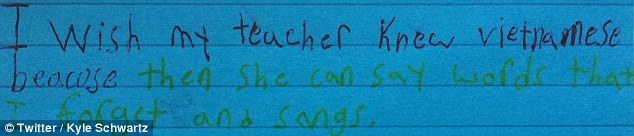 I Wish my teacher Knew vietnamese
beacuse then she can say words that
I forget and sangs.
© Twitter / Kyle Schwartz